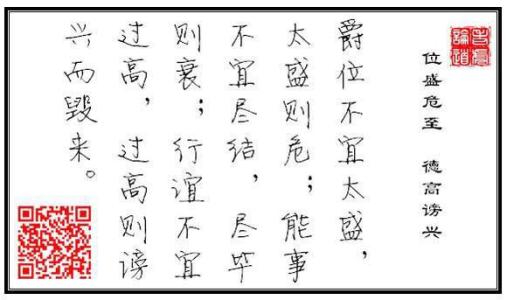 位盛危至 德高谤兴
爵位不宜太盛,
太盛则危;能事
不宜尽结,尽毕
则衰;行谊不宜
过高,过高则谤
兴而毁来。